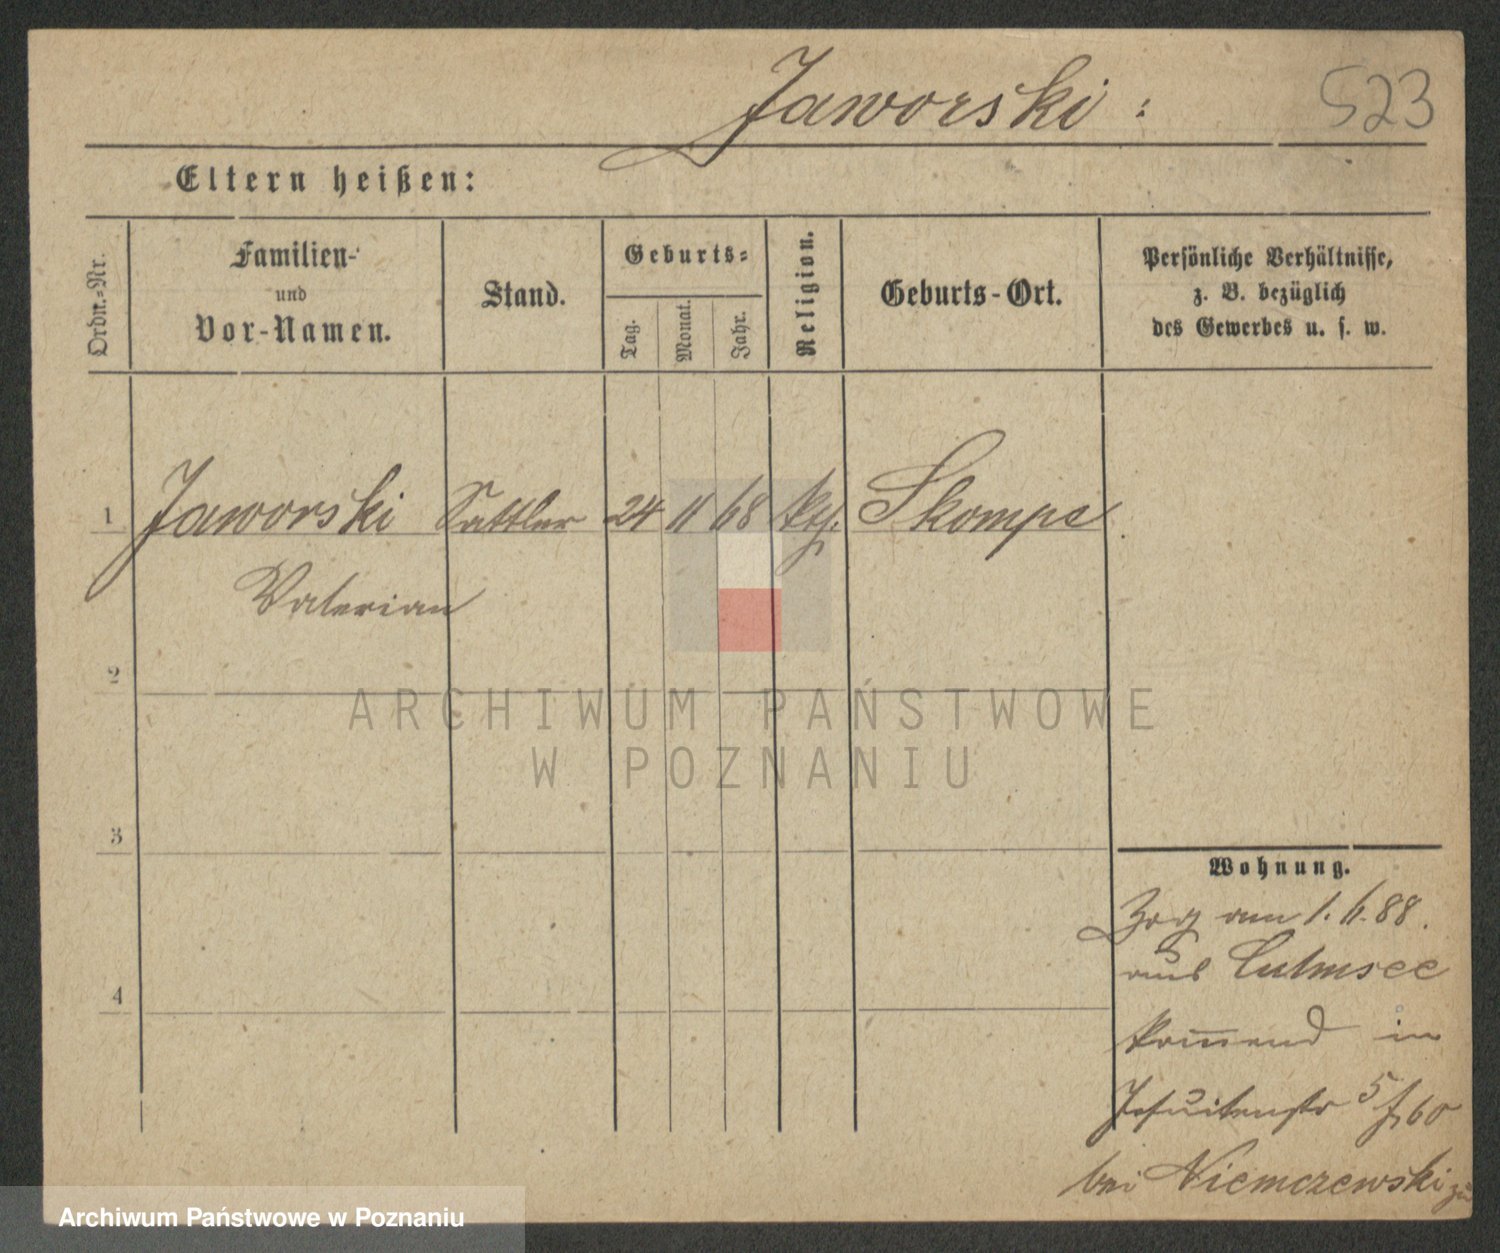 Jaworski:
523
Eltern heißen:
Ordn.-Nr.
Familien-
und
Vor-Namen.
Stand.
Geburts-
Tag.
Monat.
Jahr.
Religion.
Geburts-Ort.
Persönliche Verhältnisse,
z. B. bezüglich
des Gewerbes u. s. w.
1 Jaworski Sattler 24 11 68 kth. Skompe
Valerian
2
ARCHIWUM PAŃSTWOWE
W POZNANIU
3
4
Wohnung.
Zog am 1. 6. 88.
aus Culmsee
kommend in
Jesuitenstr 5
bei Niemczewski zu
Archiwum Państwowe w Poznaniu